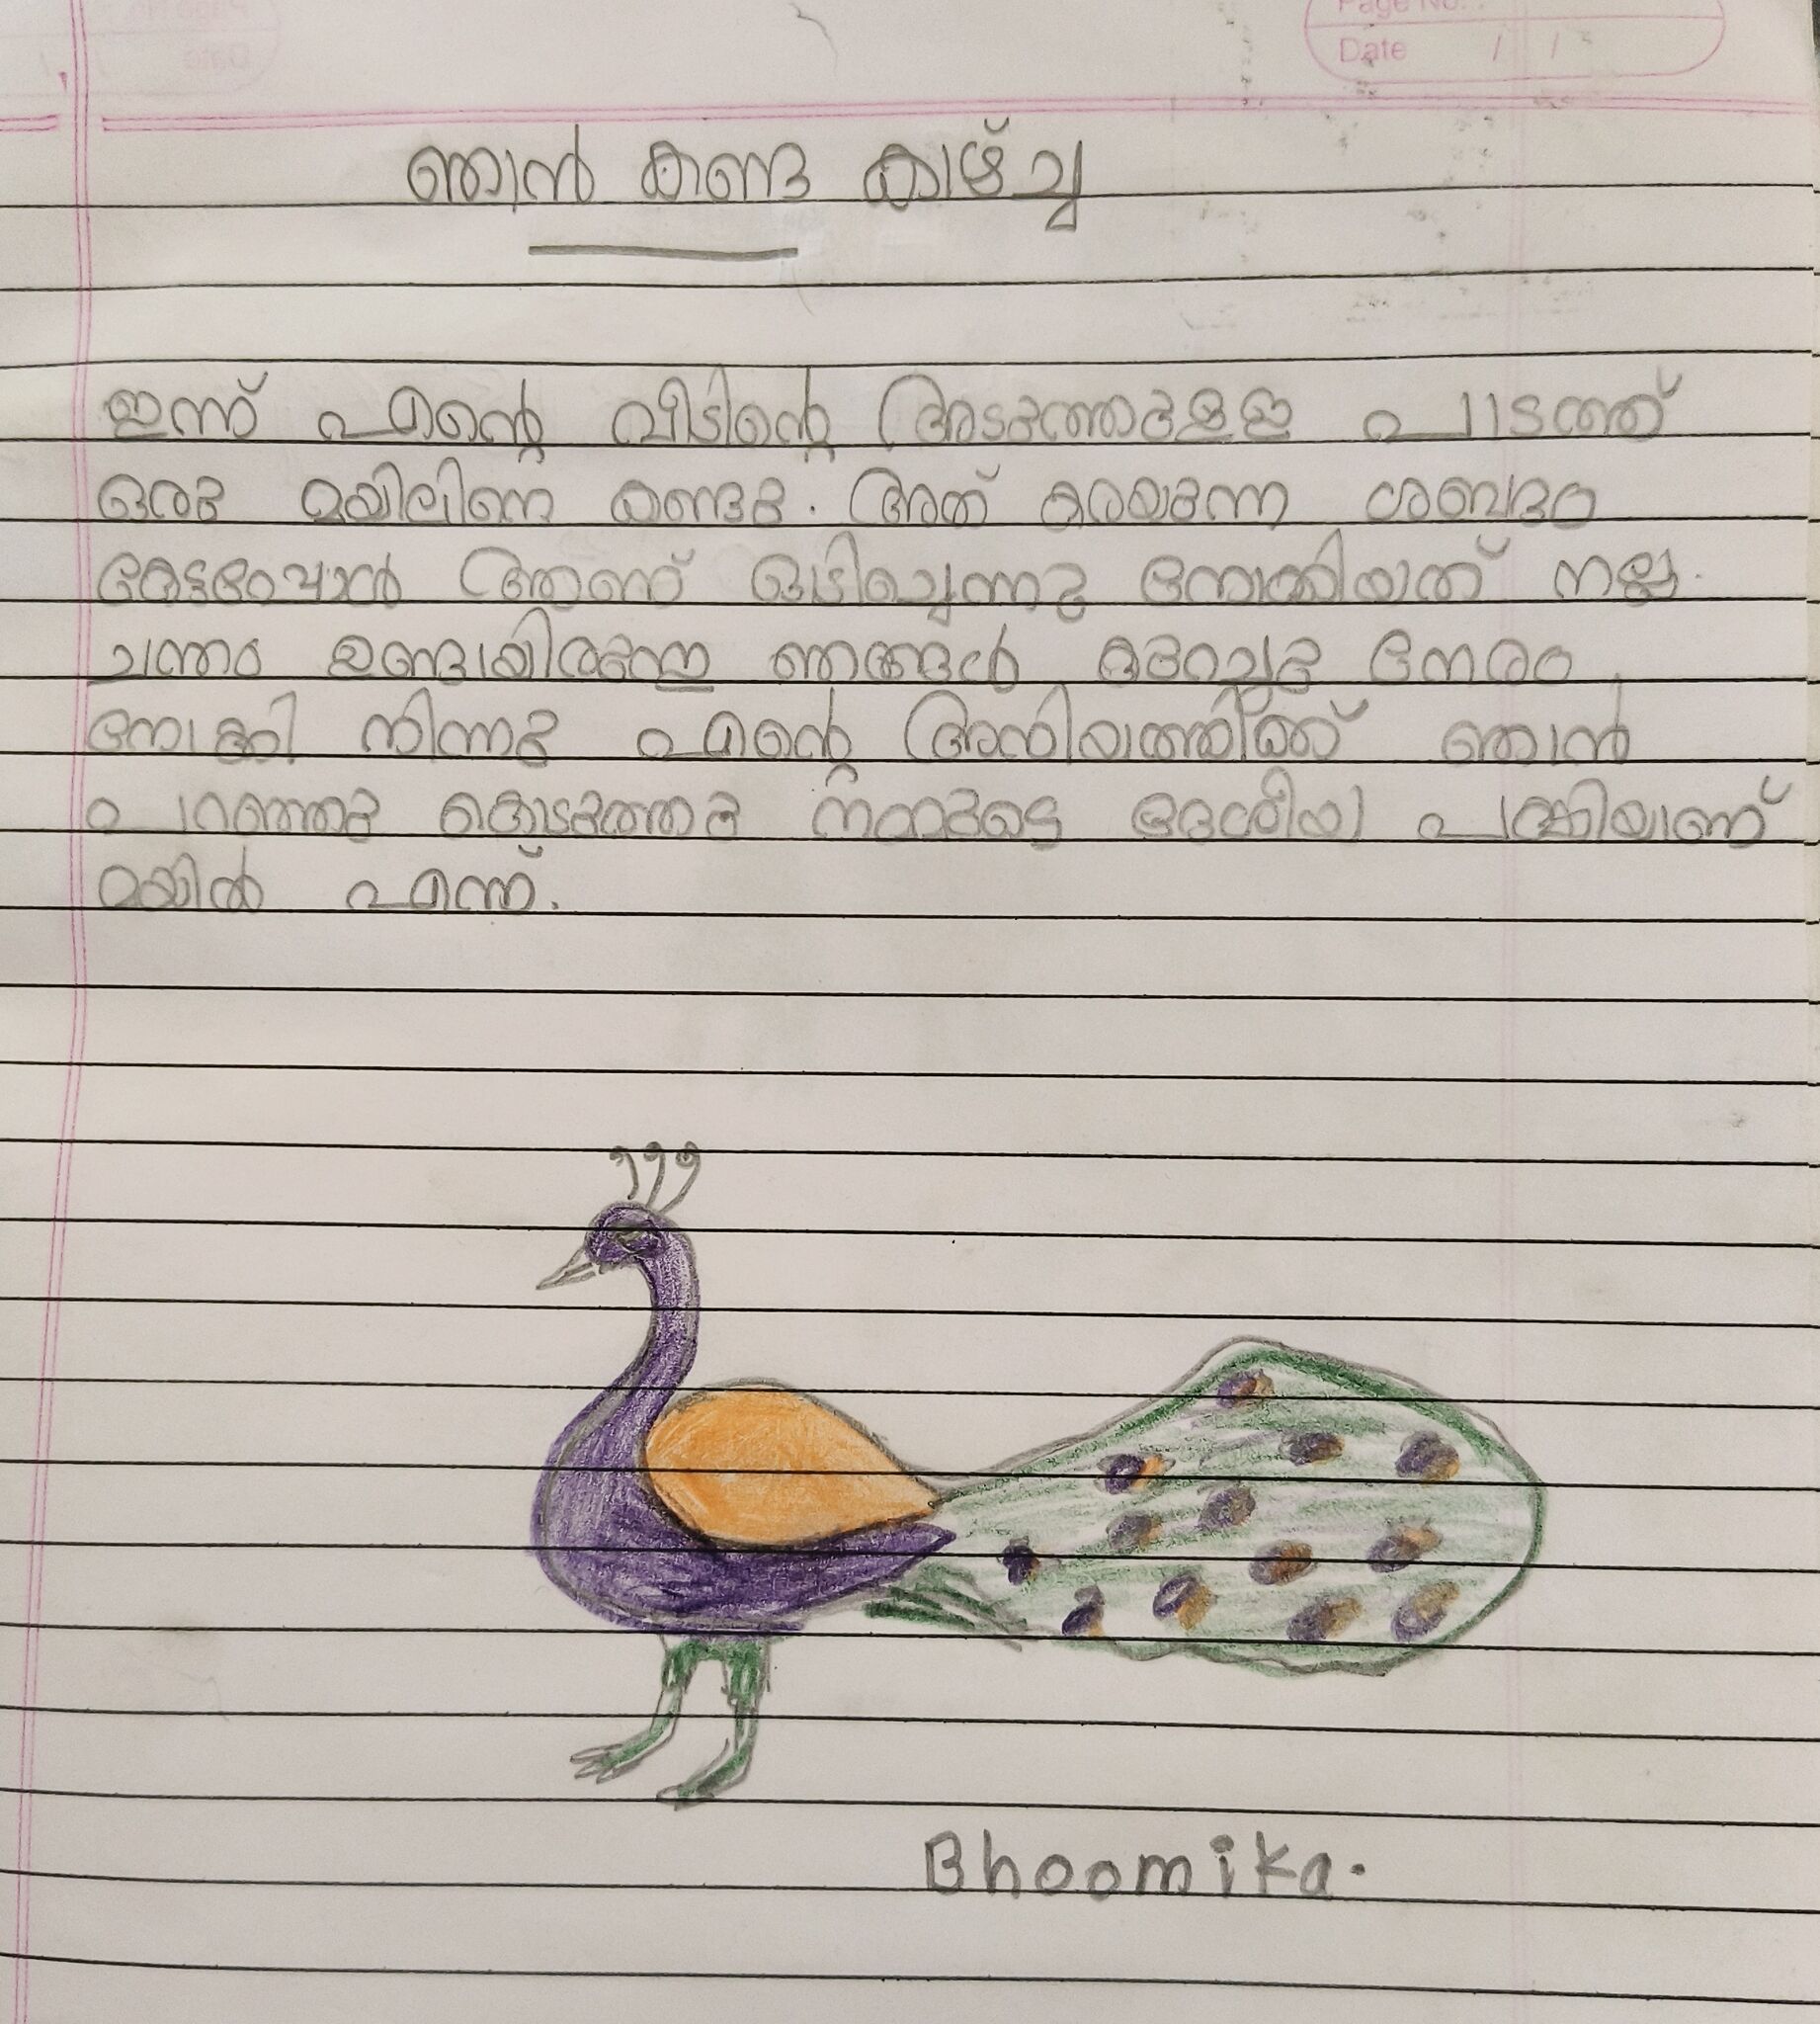 Page No. :
Date / /
ഞാൻ കണ്ട കാഴ്ച്ച
ഇന്ന് എന്റെ വീടിന്റെ അടുത്തുള്ള പാടത്ത്
ഒരു മയിലിനെ കണ്ടു. അത് കരയുന്ന ശബ്ദം
കേട്ടപ്പോൾ ആണ് ഓടിച്ചെന്നു നോക്കിയത് നല്ല
ചന്തം ഉണ്ടായിരുന്നു ഞങ്ങൾ കുറച്ചു നേരം
നോക്കി നിന്നു എന്റെ അനിയത്തിക്ക് ഞാൻ
പറഞ്ഞു കൊടുത്തു നമ്മുടെ ദേശീയ പക്ഷിയാണ്
മയിൽ എന്ന്.
Bhoomika.